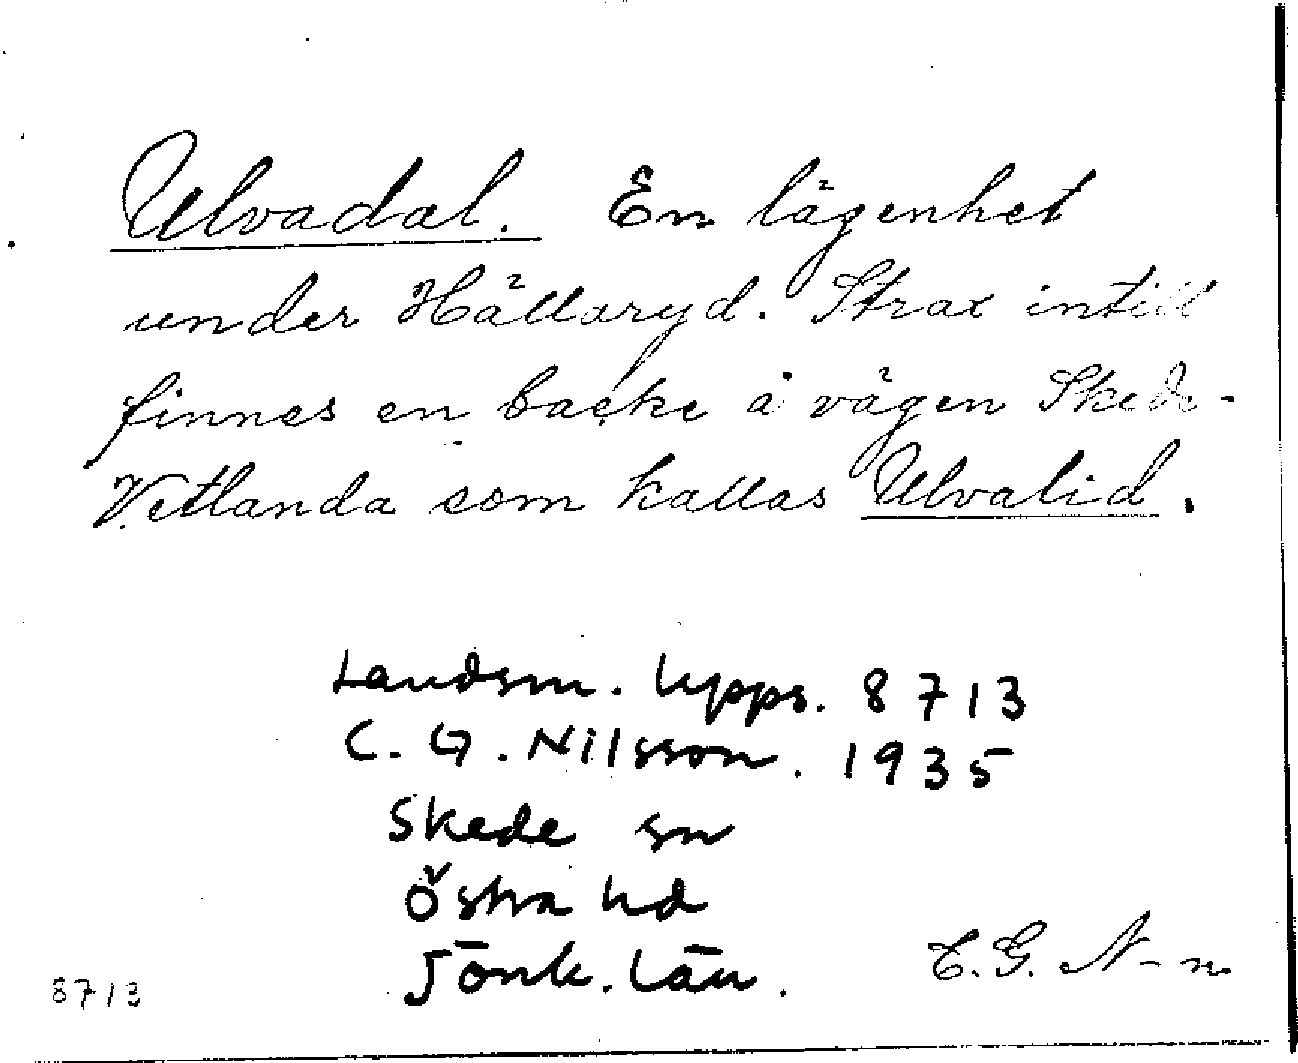 Ulvadal. En lägenhet
under Hällaryd. Strax intill
finnes en backe å vägen Skede-
Vetlanda som kallas Ulvalid.
Landsm. Upps. 8713
C. G. Nilsson. 1935
Skede sn
Östra hd
Jönk. län.
C. G. N-n
8713